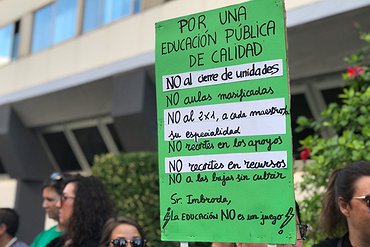 POR UNA
EDUCACIÓN PÚBLICA
DE CALIDAD
NO al cierre de unidades
NO aulas masificadas
NO AL 2x1, a cada maestro/a
su especialidad
NO recortes en los apoyos
NO recortes en recursos
NO a las bajas sin cubrir
Sr. Imbroda,
¡La EDUCACIÓN NO es un juego!